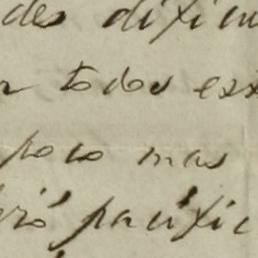 des dificu
todos es
poco mas
pacific